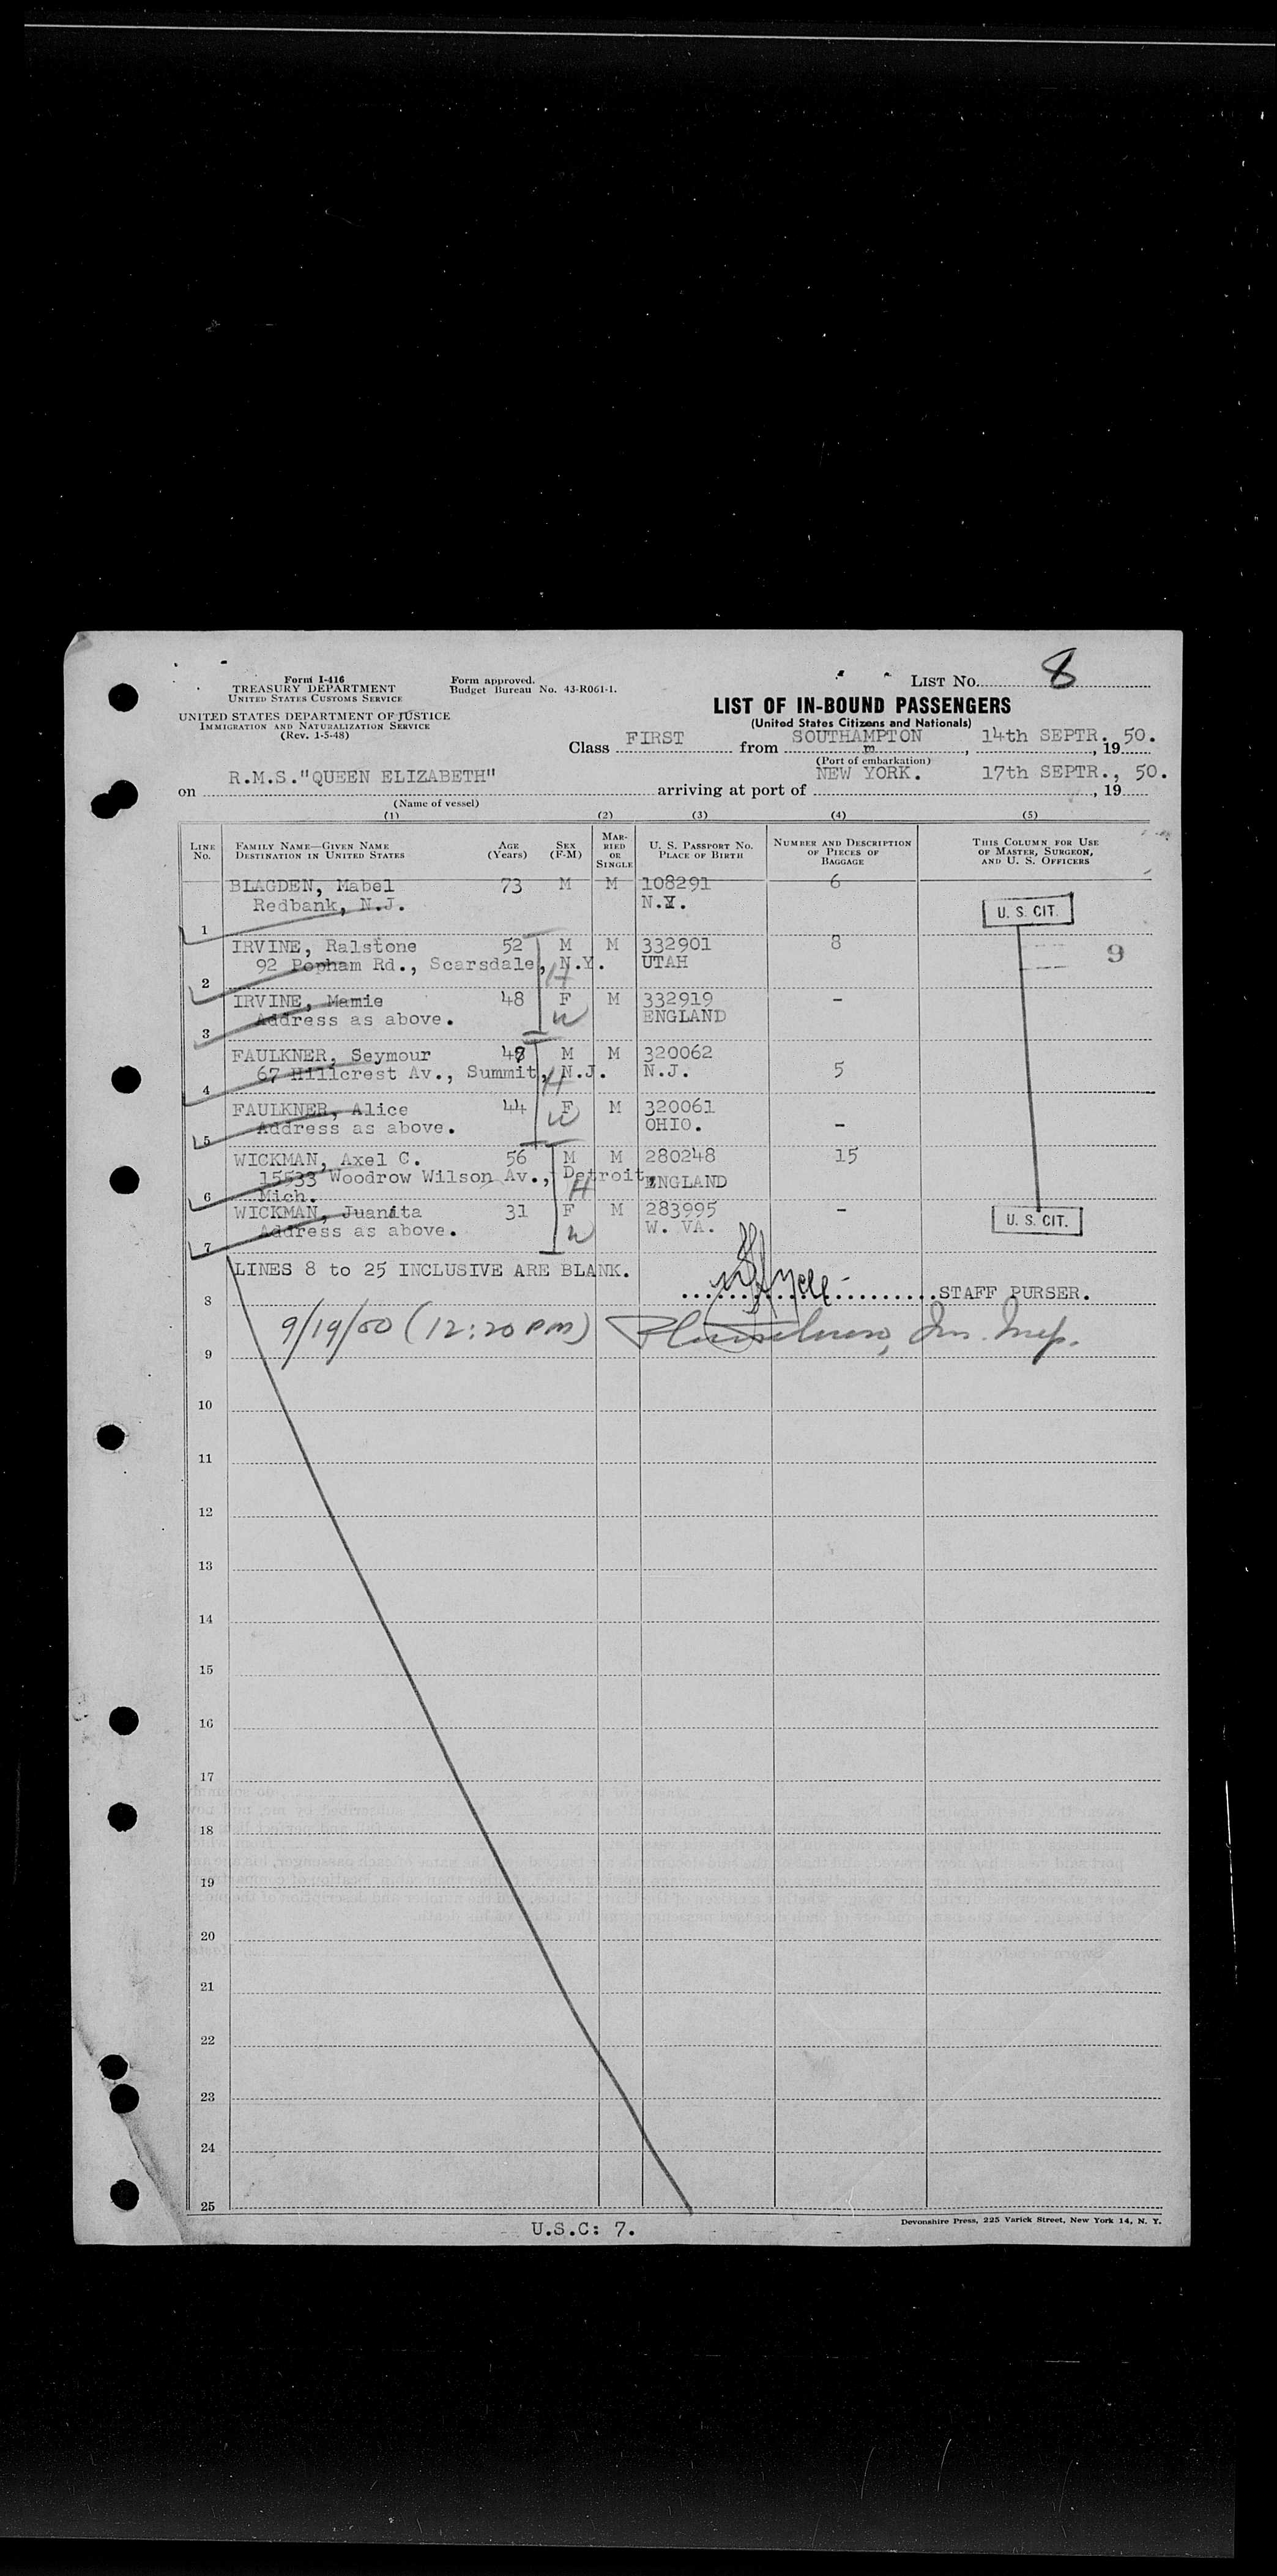 Form I-416
TREASURY DEPARTMENT
UNITED STATES CUSTOMS SERVICE
UNITED STATES DEPARTMENT OF JUSTICE
IMMIGRATION AND NATURALIZATION SERVICE
(Rev. 1-5-48)
Form approved.
Budget Bureau No. 43-R061-1.
LIST NO. 8
LIST OF IN-BOUND PASSENGERS
(United States Citizens and Nationals)
Class FIRST from SOUTHAMPTON, 14th SEPTR., 19 50.
(Port of embarkation)
on R.M.S."QUEEN ELIZABETH" arriving at port of NEW YORK. 17th SEPTR., 19 50.
(Name of vessel)
(1) (2) (3) (4) (5)
LINE NO. FAMILY NAME—GIVEN NAME DESTINATION IN UNITED STATES AGE (YEARS) SEX (F-M) MARRIED OR SINGLE U. S. PASSPORT NO. PLACE OF BIRTH NUMBER AND DESCRIPTION OF PIECES OF BAGGAGE THIS COLUMN FOR USE OF MASTER, SURGEON, AND U. S. OFFICERS
BLAGDEN, Mabel 73 M M 108291 6
Redbank, N.J. N.Y. U. S. CIT.
1
IRVINE, Ralstone 52 M M 332901 8 9
92 Popham Rd., Scarsdale, N.Y. UTAH
2 H
IRVINE, Mamie 48 F M 332919 -
Address as above. W ENGLAND
3
FAULKNER, Seymour 48 M M 320062
67 Hillcrest Av., Summit, N.J. N.J. 5
4 H
FAULKNER, Alice 44 F M 320061
Address as above. W OHIO. -
5
WICKMAN, Axel C. 56 M M 280248 15
15533 Woodrow Wilson Av., Detroit, ENGLAND
6 Mich. H
WICKMAN, Juanita 31 F M 283995 -
Address as above. W W. VA. U. S. CIT.
7
LINES 8 to 25 INCLUSIVE ARE BLANK.
STAFF PURSER.
8
9/19/50 (12:20 PM) Im. Insp.
9
10
11
12
13
14
15
16
17
18
19
20
21
22
23
24
25
U.S.C: 7.
Devonshire Press, 225 Varick Street, New York 14, N. Y.